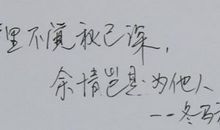 里不觉秋已深，
余情岂是为他人
--冬马